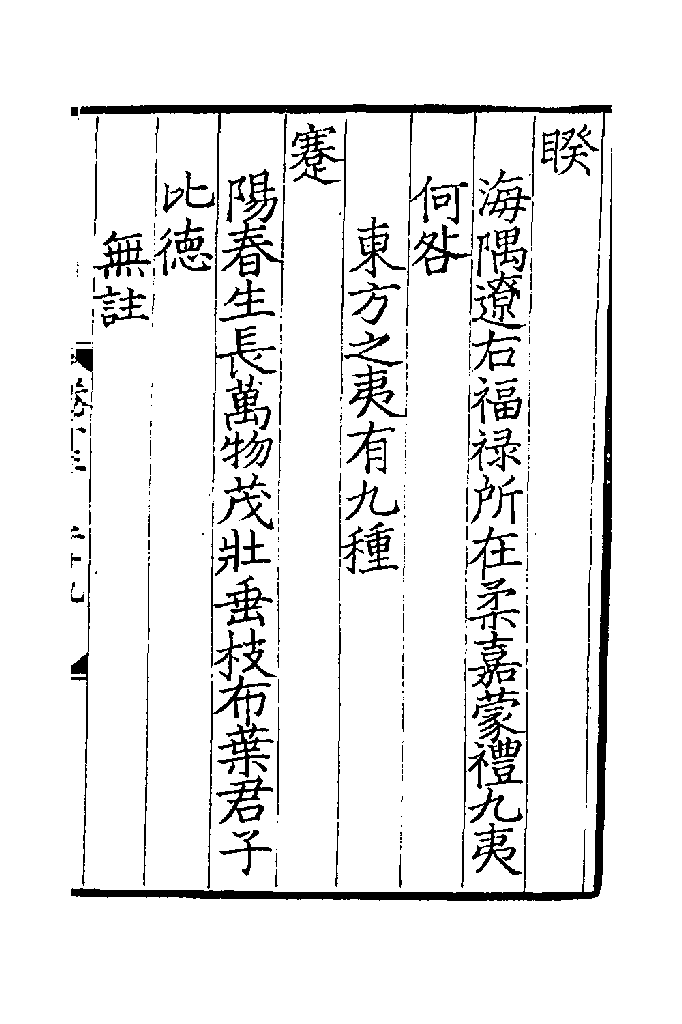 睽
海隅遼右福禄所在柔嘉蒙禮九夷
何咎
東方之夷有九種
蹇
陽春生長萬物茂壯垂枝布葉君子
比德
無註